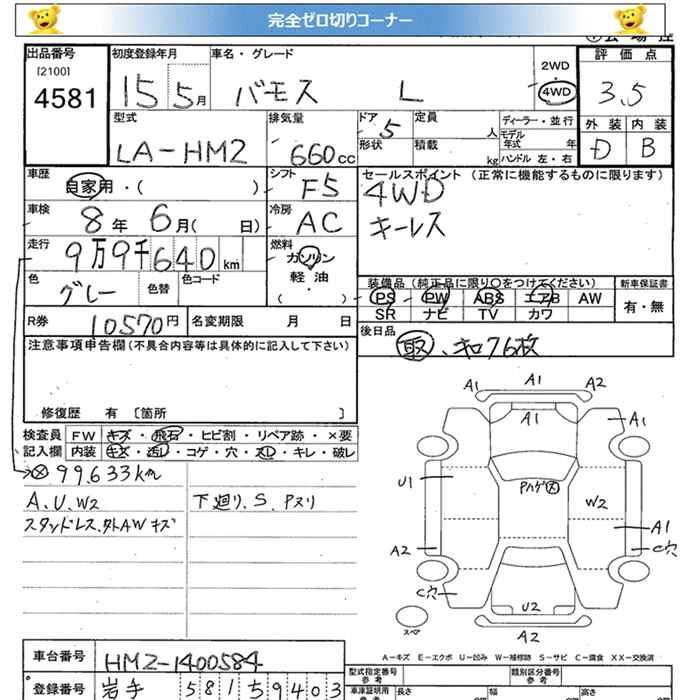 完全ゼロ切りコーナー
出品番号
[2100]
4581
初度登録年月
15 5月
車名・グレード
バモス L
2WD
4WD
評価点
3.5
外装 内装
D B
型式
LA-HM2
排気量
660cc
ドア 5
形状
定員 人
積載 kg
ディーラー・並行
モデル年式 年
ハンドル 左・右
車歴
自家用・( )
シフト
F5
セールスポイント (正常に機能するものに限ります)
4WD
キーレス
車検
8年 6月( 日)
冷房
AC
走行
9万9千640km
燃料
ガソリン
軽油
( )
色
グレー
色替
色コード
装備品 (純正品に限り〇をつけてください)
新車保証書
PS PW ABS エアB AW
SR ナビ TV カワ
有・無
R券
10570円
名変期限 月 日
後日品
注意事項申告欄(不具合内容等は具体的に記入して下さい)
修復歴 有 [箇所 ]
検査員
記入欄
FW キズ・飛石・ヒビ割・リペア跡・×要
内装 キズ・汚レ・コゲ・穴・スレ・キレ・破レ
99,633km
A.U.W2
スタンドレス、外AWキズ
下廻り、S.Pヌリ
A1 A1 A2
A1 A1
U1
Pハゲ大
W2
A1
A2
C穴
C穴
U2
A2
スペア
A-キズ E-エクボ U-凹み W-補修跡 S-サビ C-腐食 XX-交換済
車台番号
HM2-1400584
登録番号
岩手 581 59403
型式指定番号
参考
類別区分番号
参考
車庫証明用
長さ
幅
高さ